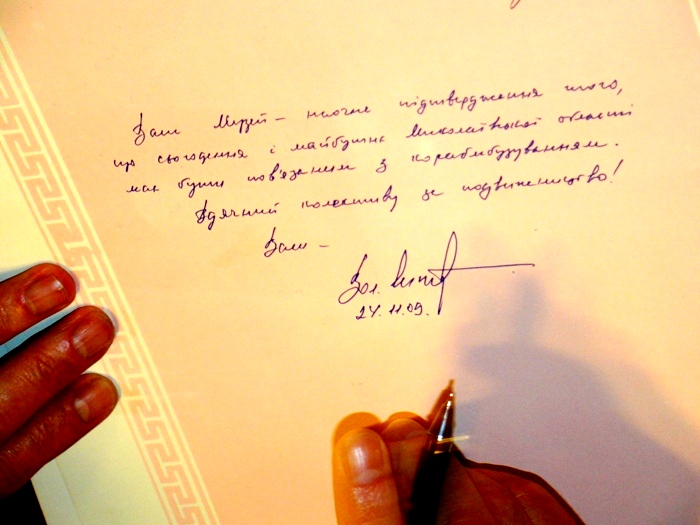 Ваш Музей – наочне підтвердження того,
що сьогодення і майбутнє Миколаївської області
має бути пов'язаним з кораблебудуванням.
Вдячний колективу за подвижництво!
Ваш –
Вол.
24.11.09.